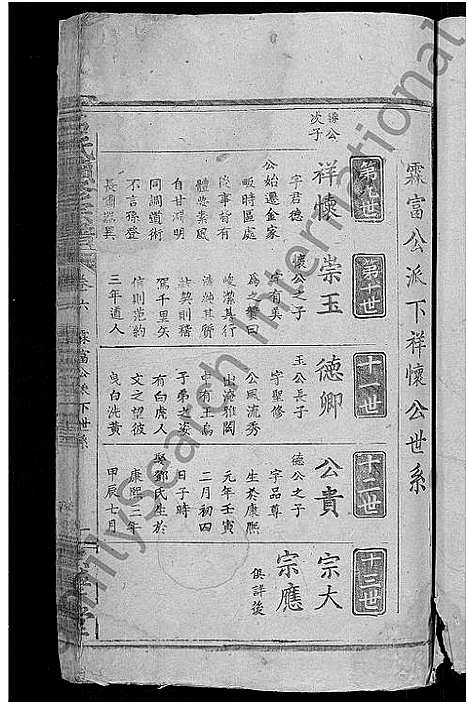 霖富公派下祥懷公世系
第九世
第十世
十一世
十二世
十三世
次子
祥懷
字君德
公始遷金家
畈時區處
後事皆有
體愨素風
自甘淵明
同調道術
不言孫登
長肅器異
崇玉
懷公之子
為之筆曰
峻潔其行
清純其質
駕千里矣
信則范約
三年道人
德卿
玉公長子
字聖修
公風流秀
出海雅閎
占有王烏
子弟之姿
有白虎人
文之望彼
曳白洗黃
公貴
德公之子
字品尊
生於康熙
元年壬寅
二月初四
日子時
娶鄧氏生於
康熙三年
甲辰七月
宗大
宗應
俱詳後
卷六
霖富公派下世系
FamilySearch International